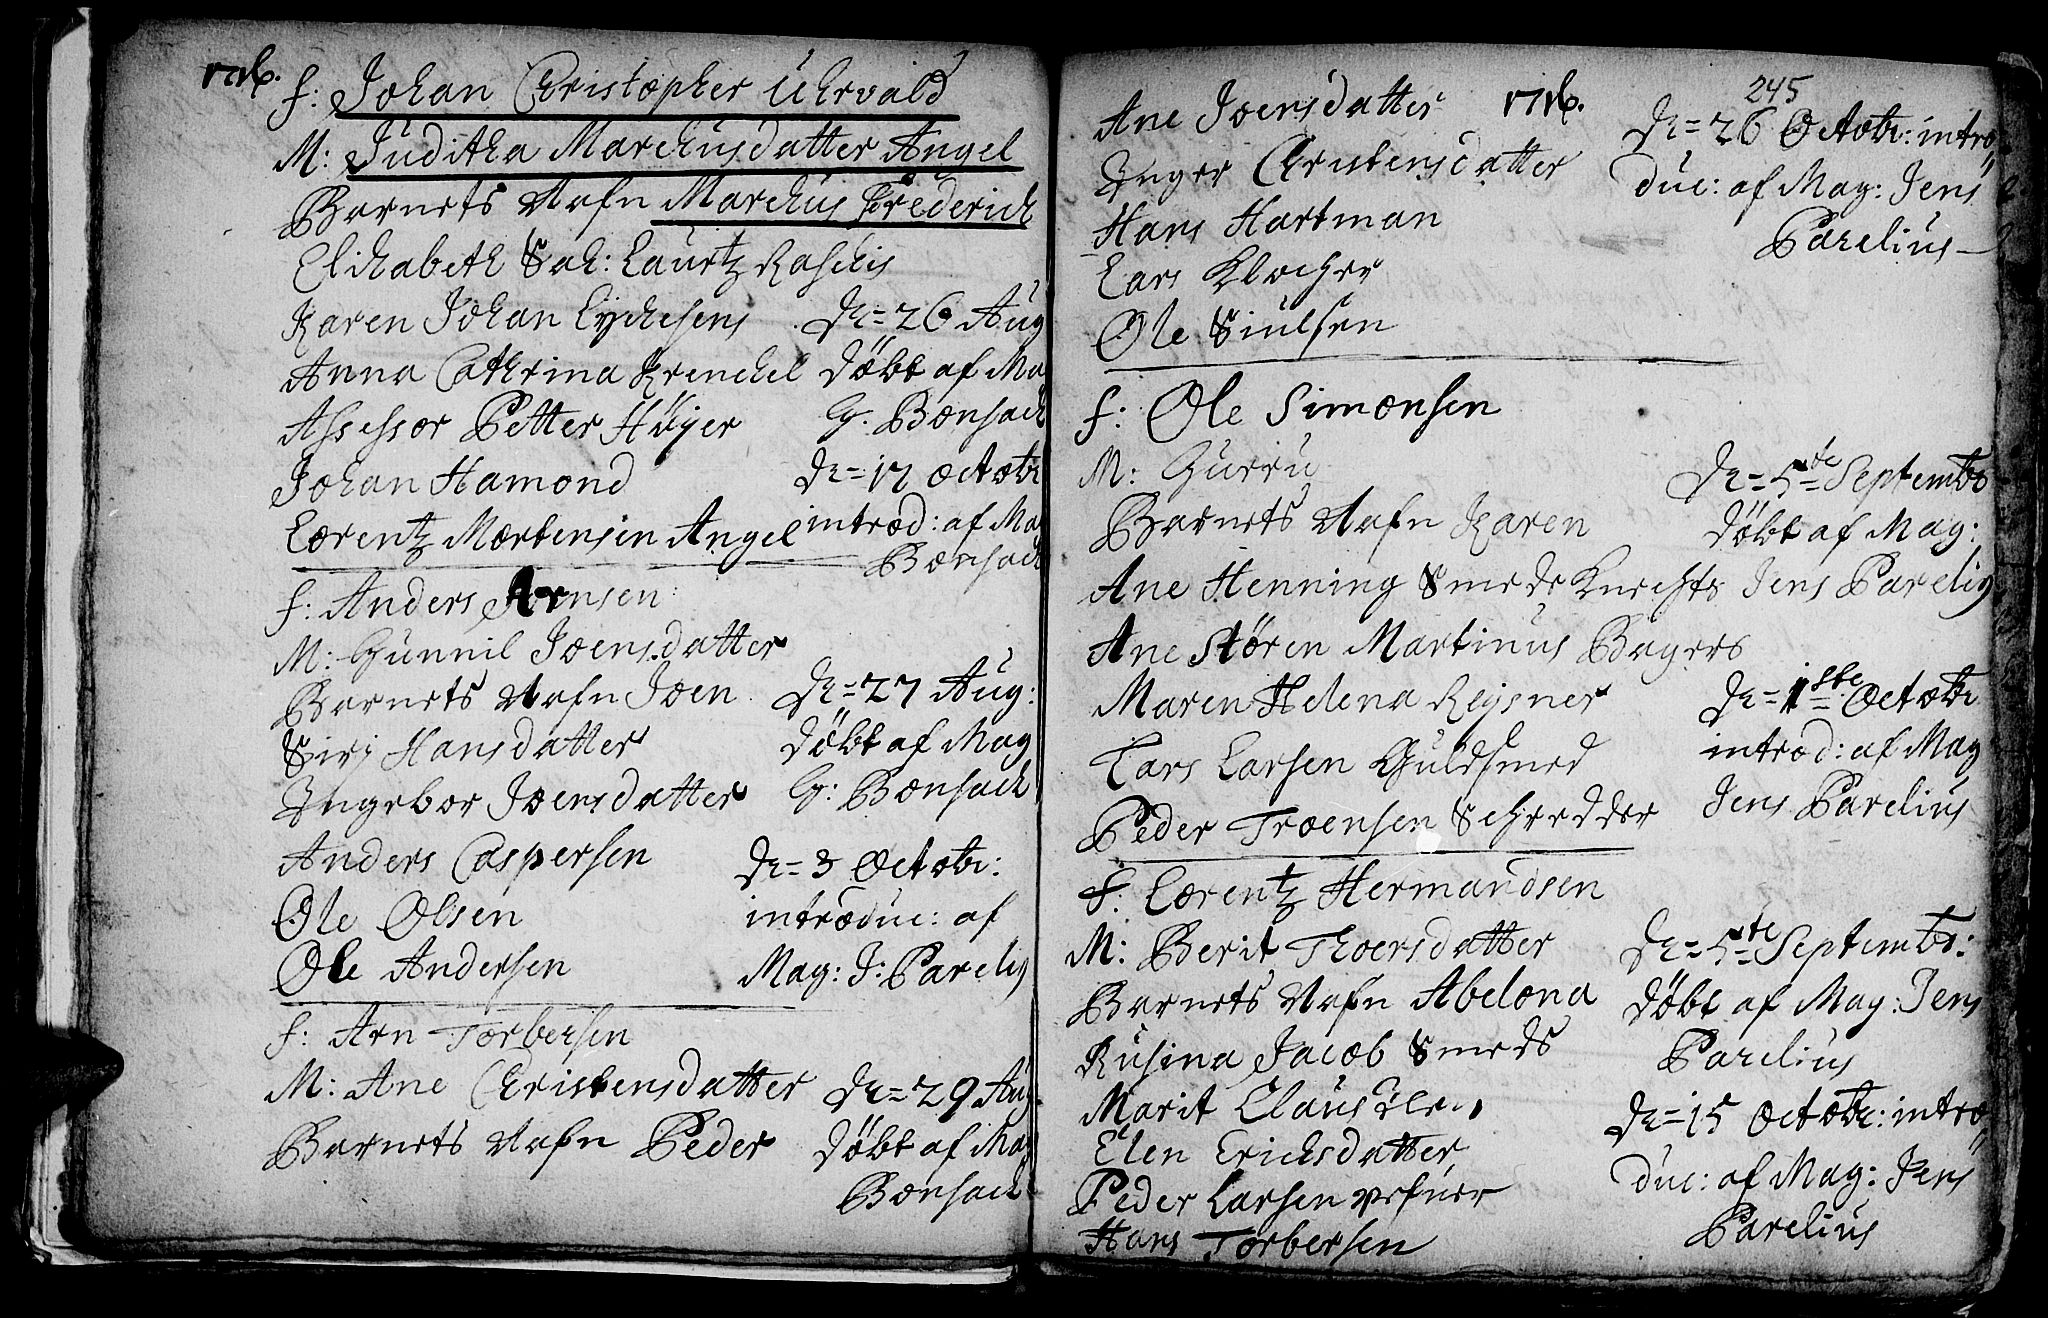 1716.
f: Johan Christopher Uhrvald
M: Juditha Marchusdatter Angel
Barnets Nafn Marchus Frederich
Elichabeth Sal: Laurtz Raschis
Karen Johan Eychesens
Anna Cathrina Krenchel
Assessor Petter Høyer
Johan Hamond
Lorentz Mortensen Angel
d: = 26 Aug
døbt af Ma
G. Bonsach
d: = 17 Octobr
introd: af Ma
Bonsach
f: Anders Arnsen
M: Gunnil Joensdatter
Barnets Nafn Joen
Siri Hansdatter
Ingebor Joensdatter
Anders Caspersen
Ole Olsen
Ole Andersen
d: = 27 Aug:
døbt af Mag
G: Bonsach
d: = 3 Octobr:
introduc: af
Mag: J: Pareliy
f: Arn Torbersen
M: Ane Christensdatter
Barnets Nafn Peder
d: = 29 Aug
døbt af Mag
Bonsach
245
1716.
Ane Joensdatter
Inger Christensdatter
Hans Hartman
Lars Klocher
Ole Siulsen
d: = 26 Octobr: intro
duc: af Mag: Jens
Parelius
f: Ole Simonsen
M: Gurru
Barnets Nafn Karen
Ane Henning Smede Knechts
Ane Støren Martinus Bagers
Maren Helena Reysner
Lars Larsen Guldsmed
Peder Troensen Schredder
d: = 5te Septembr
døbt af Mag:
Jens Pareliy
d: = 1ste Octobr
introd: af Mag
Jens Parelius
f: Lorentz Hermandsen
M: Berit Thoersdatter
Barnets Nafn Abelona
Rusina Jacob Smeds
Marit Claus
Elen Erichsdatter
Peder Larsen
Hans Torbersen
d: = 5te Septembr:
døbt af Mag: Jens
Parelius
d: = 15 Octobr: intro
duc: af Mag: Jens
Parelius